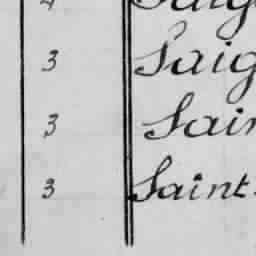 3 Saig
3 Sain
3 Saint